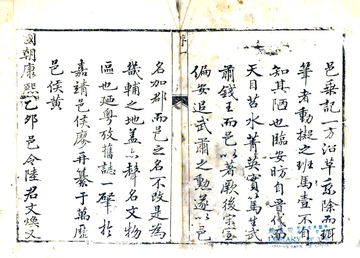 邑乘記一方沿革亟除而珥
筆者動擬之班馬亶不自
知其陋也臨安昉自晉代而
天目苕水菁英實篤生武
肅錢王而邑以著厥後宗室
偏安追武肅之勳遂以邑
名加郡而邑之名不改是為
畿輔之地葢亦聲名文物
區也廼粤攷舊誌一肇於
嘉靖邑侯廖再纂于萬曆
邑侯黃
國朝康熙乙夘邑令陸君文煥又
序